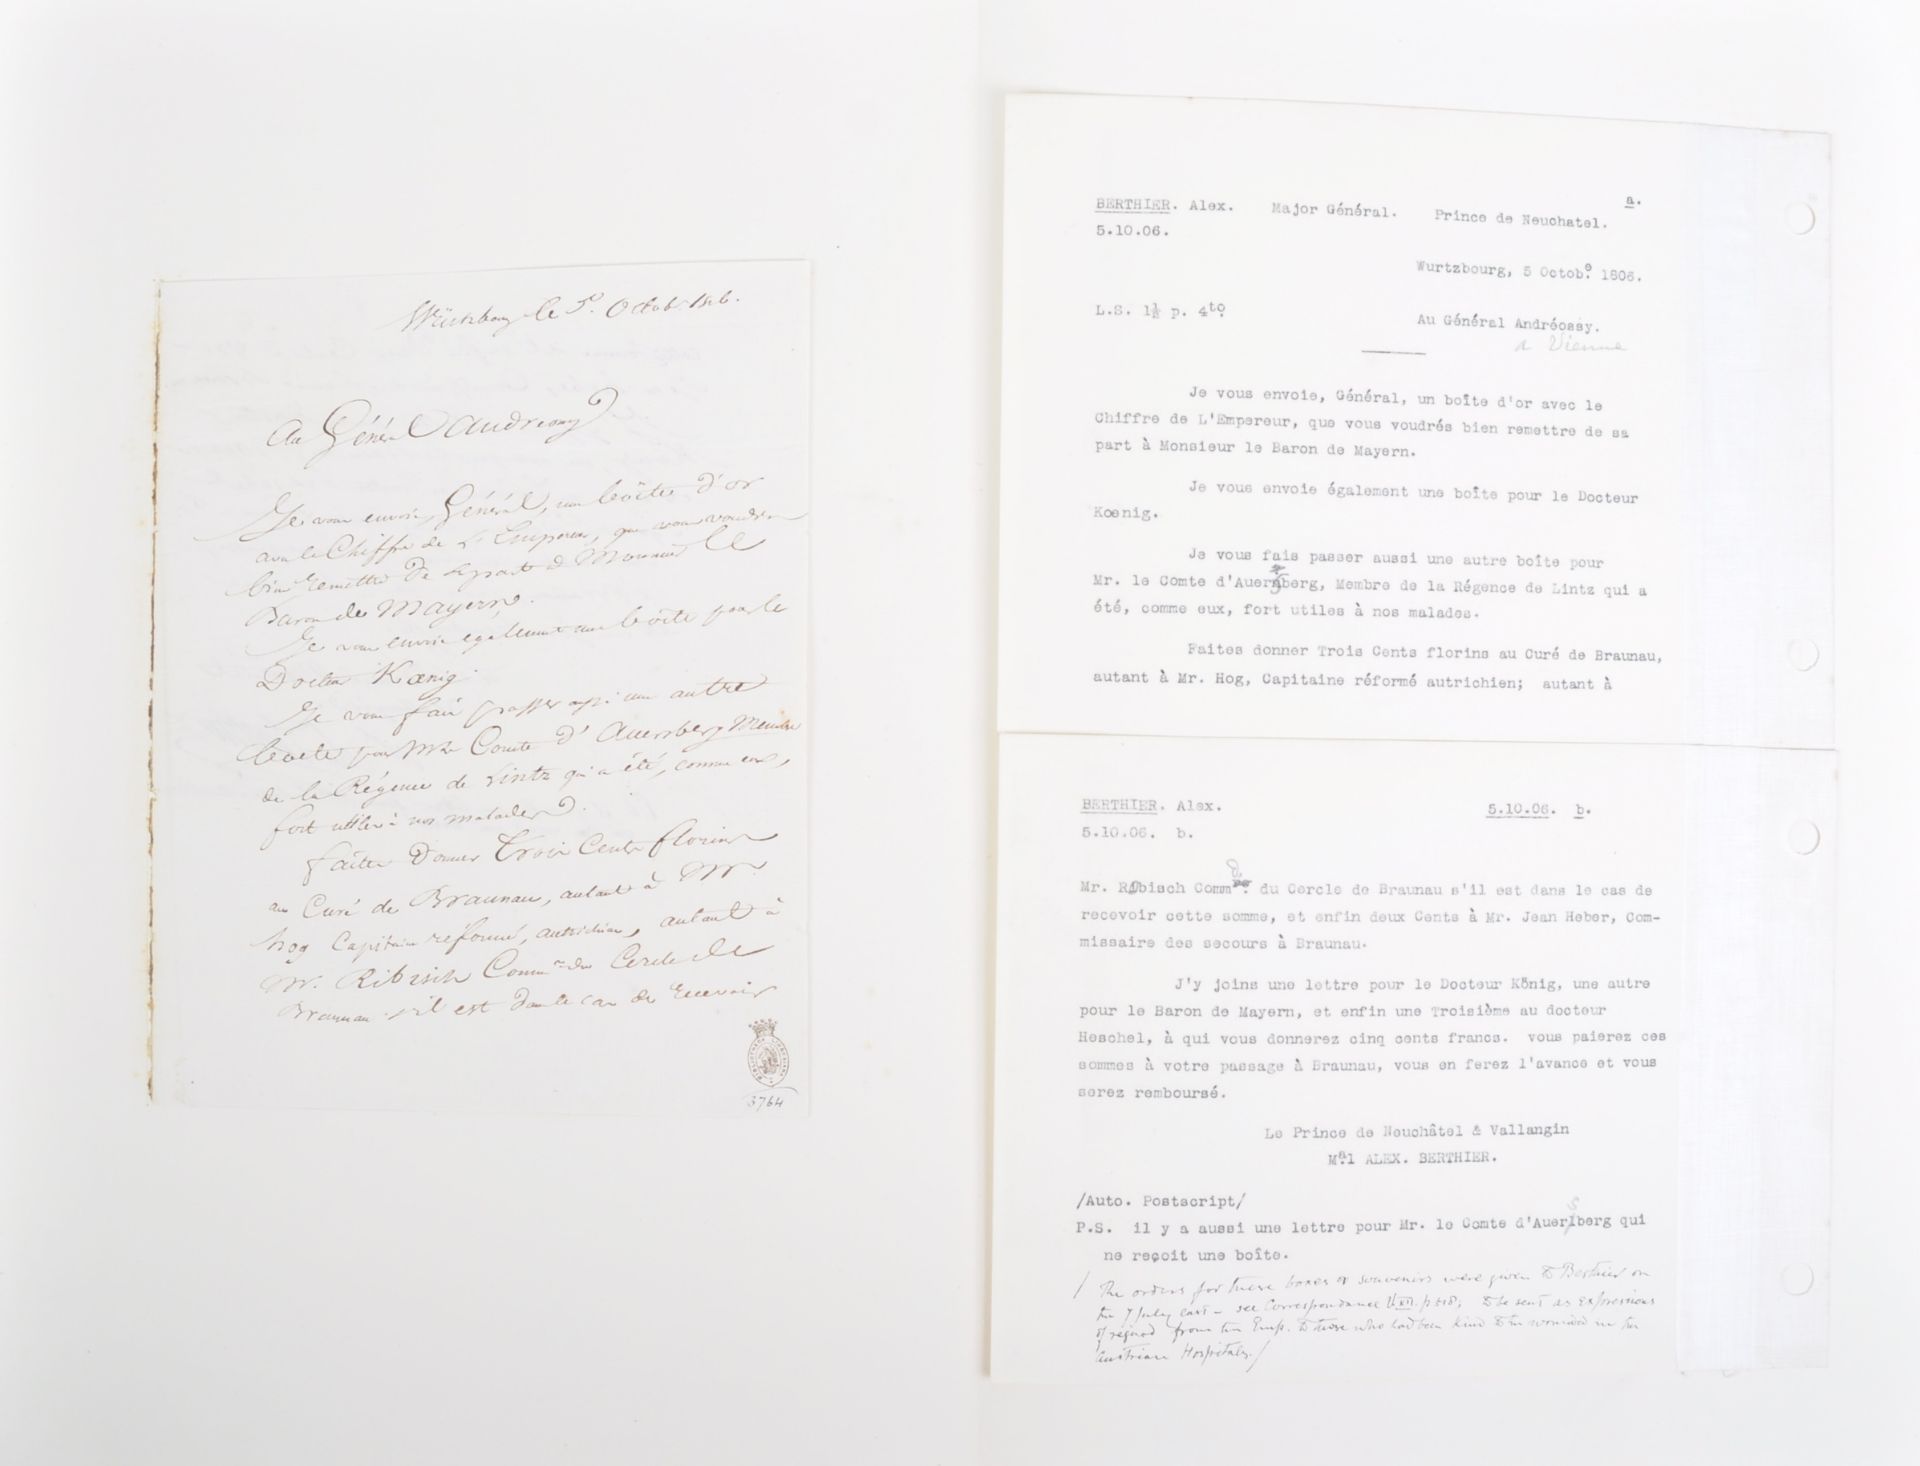 Würtzbourg le 5. Octob. 1806.
Au Général Andréossy
Je vous envoie, Général, une boîte d'or
avec le Chiffre de L'Empereur, que vous voudrés
bien remettre de sa part à Monsieur le
Baron de Mayern.
Je vous envoie également une boîte pour le
Docteur Kœnig.
Je vous fais passer aussi une autre
boete pour Mr le Comte d'Auersberg Membre
de la Régence de Lintz qui a été, comme eux,
fort utiles à nos malades.
faites donner Trois Cents florins
au Curé de Braunau, autant à Mr.
hog Capitaine réformé, autrichien, autant à
Mr. Ribisch Comm. du Cercle de
Braunau s'il est dans le cas de recevoir
3764
BERTHIER. Alex. Major Général. Prince de Neuchatel. a.
5.10.06.
Wurtzbourg, 5 Octobe. 1806.
L.S. 1½ p. 4to.
Au Général Andréossy.
a Vienne
Je vous envoie, Général, un boîte d'or avec le
Chiffre de L'Empereur, que vous voudrés bien remettre de sa
part à Monsieur le Baron de Mayern.
Je vous envoie également une boîte pour le Docteur
Kœnig.
Je vous fais passer aussi une autre boîte pour
Mr. le Comte d'Auersberg, Membre de la Régence de Lintz qui a
été, comme eux, fort utiles à nos malades.
Faites donner Trois Cents florins au Curé de Braunau,
autant à Mr. Hog, Capitaine réformé autrichien; autant à
BERTHIER. Alex. 5.10.06. b.
5.10.06. b.
Mr. Ribisch Comm. du Cercle de Braunau s'il est dans le cas de
recevoir cette somme, et enfin deux Cents à Mr. Jean Heber, Com-
missaire des secours à Braunau.
J'y joins une lettre pour le Docteur König, une autre
pour le Baron de Mayern, et enfin une Troisième au docteur
Heschel, à qui vous donnerez cinq cents francs. vous paierez ces
sommes à votre passage à Braunau, vous en ferez l'avance et vous
serez remboursé.
Le Prince de Neuchâtel & Vallangin
Mal ALEX. BERTHIER.
/Auto. Postscript/
P.S. il y a aussi une lettre pour Mr. le Comte d'Auersberg qui
ne reçoit une boîte.
/ The orders for these boxes or souvenirs were given to Berthier on
the 7 July last – see Correspondance V. XII. p. 518; to be sent as expressions
of regard from the Emp. to those who had been kind to the wounded in the
Austrian Hospitals. /